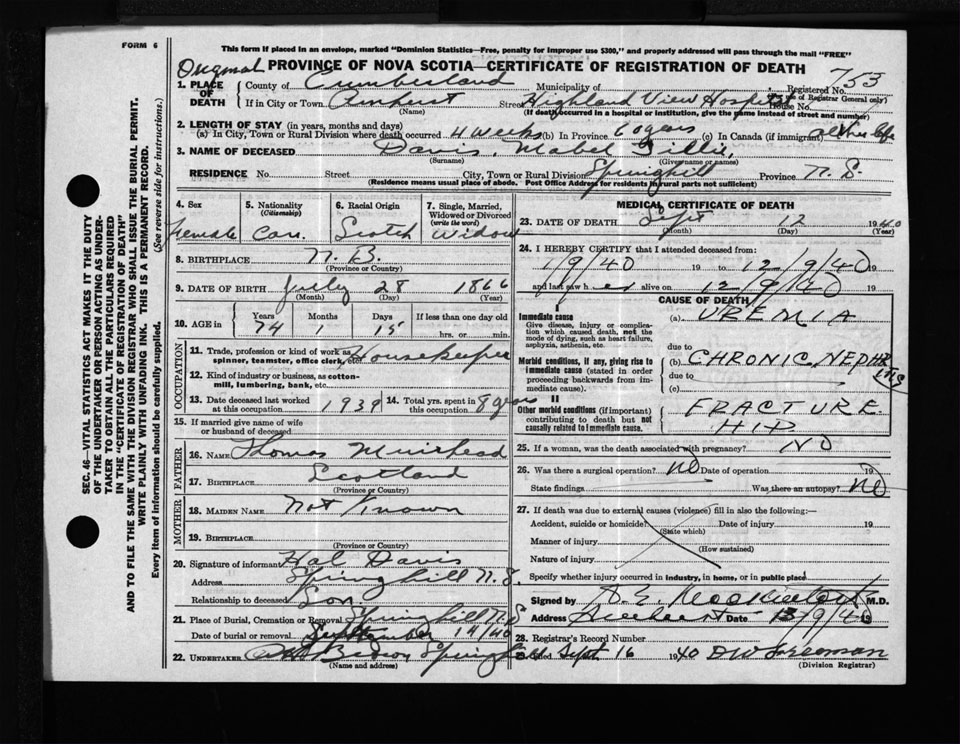 FORM 6
This form if placed in an envelope, marked "Dominion Statistics—Free, penalty for improper use $300," and properly addressed will pass through the mail "FREE"
Original PROVINCE OF NOVA SCOTIA—CERTIFICATE OF REGISTRATION OF DEATH
753
1. PLACE OF DEATH County of Cumberland Municipality of Registered No.
(For use of Registrar General only)
If in City or Town Amherst Street Highland View Hospital House No.
(Name) (If death occurred in a hospital or institution, give the name instead of street and number)
2. LENGTH OF STAY (in years, months and days)
(a) In City, Town or Rural Division where death occurred 4 weeks (b) In Province 60 years (c) In Canada (if immigrant) all her life
3. NAME OF DECEASED Davis, Mabel Tillie,
(Surname) (Given name or names)
RESIDENCE No. Street City, Town or Rural Division Springhill Province N. S.
(Residence means usual place of abode. Post Office Address for residents in rural parts not sufficient)
4. Sex 5. Nationality (Citizenship) 6. Racial Origin 7. Single, Married, Widowed or Divorced (write the word)
Female Can. Scotch Widow
8. BIRTHPLACE N. B.
(Province or Country)
9. DATE OF BIRTH July 28 1866
(Month) (Day) (Year)
10. AGE in Years Months Days If less than one day old
74 1 15 hrs. or min.
OCCUPATION
11. Trade, profession or kind of work as spinner, teamster, office clerk, Housekeeper
12. Kind of industry or business, as cotton-mill, lumbering, bank, etc.
13. Date deceased last worked at this occupation 1939 14. Total yrs. spent in this occupation 8 years
15. If married give name of wife or husband of deceased
FATHER
16. NAME Thomas Muirhead
17. BIRTHPLACE Scotland
(Province or Country)
MOTHER
18. MAIDEN NAME Not Known
19. BIRTHPLACE
(Province or Country)
20. Signature of informant Hal Davis
Address Springhill N. S.
Relationship to deceased Son
21. Place of Burial, Cremation or Removal Springhill N.S
Date of burial or removal September 14/40
22. UNDERTAKER Springhill
(Name and address)
MEDICAL CERTIFICATE OF DEATH
23. DATE OF DEATH Sept 12 1940
(Month) (Day)
24. I HEREBY CERTIFY that I attended deceased from:
1/9/40 19 to 12/9/40 19
and last saw her alive on 12/9/40 19
CAUSE OF DEATH
I
Immediate cause
Give disease, injury or complication which caused death, not the mode of dying, such as heart failure, asphyxia, asthenia, etc.
(a) UREMIA
due to
Morbid conditions, if any, giving rise to immediate cause (stated in order proceeding backwards from immediate cause).
(b) CHRONIC NEPHRITIS
due to
(c)
II
Other morbid conditions (if important) contributing to death but not causally related to immediate cause.
FRACTURE
HIP
25. If a woman, was the death associated with pregnancy? NO
26. Was there a surgical operation? no Date of operation 19
State findings Was there an autopsy? no
27. If death was due to external causes (violence) fill in also the following:—
Accident, suicide or homicide? Date of injury 19
(State which)
Manner of injury
(How sustained)
Nature of injury
Specify whether injury occurred in industry, in home, or in public place
Signed by M.D.
Address Amherst Date 13/9/40 19
28. Registrar's Record Number
Filed Sept 16 1940
(Division Registrar)
SEC. 46—VITAL STATISTICS ACT MAKES IT THE DUTY
OF THE UNDERTAKER OR PERSON ACTING AS UNDERTAKER TO OBTAIN ALL THE PARTICULARS REQUIRED
IN THE "CERTIFICATE OF REGISTRATION OF DEATH"
AND TO FILE THE SAME WITH THE DIVISION REGISTRAR WHO SHALL ISSUE THE BURIAL PERMIT.
WRITE PLAINLY WITH UNFADING INK. THIS IS A PERMANENT RECORD.
Every item of information should be carefully supplied. (See reverse side for instructions.)